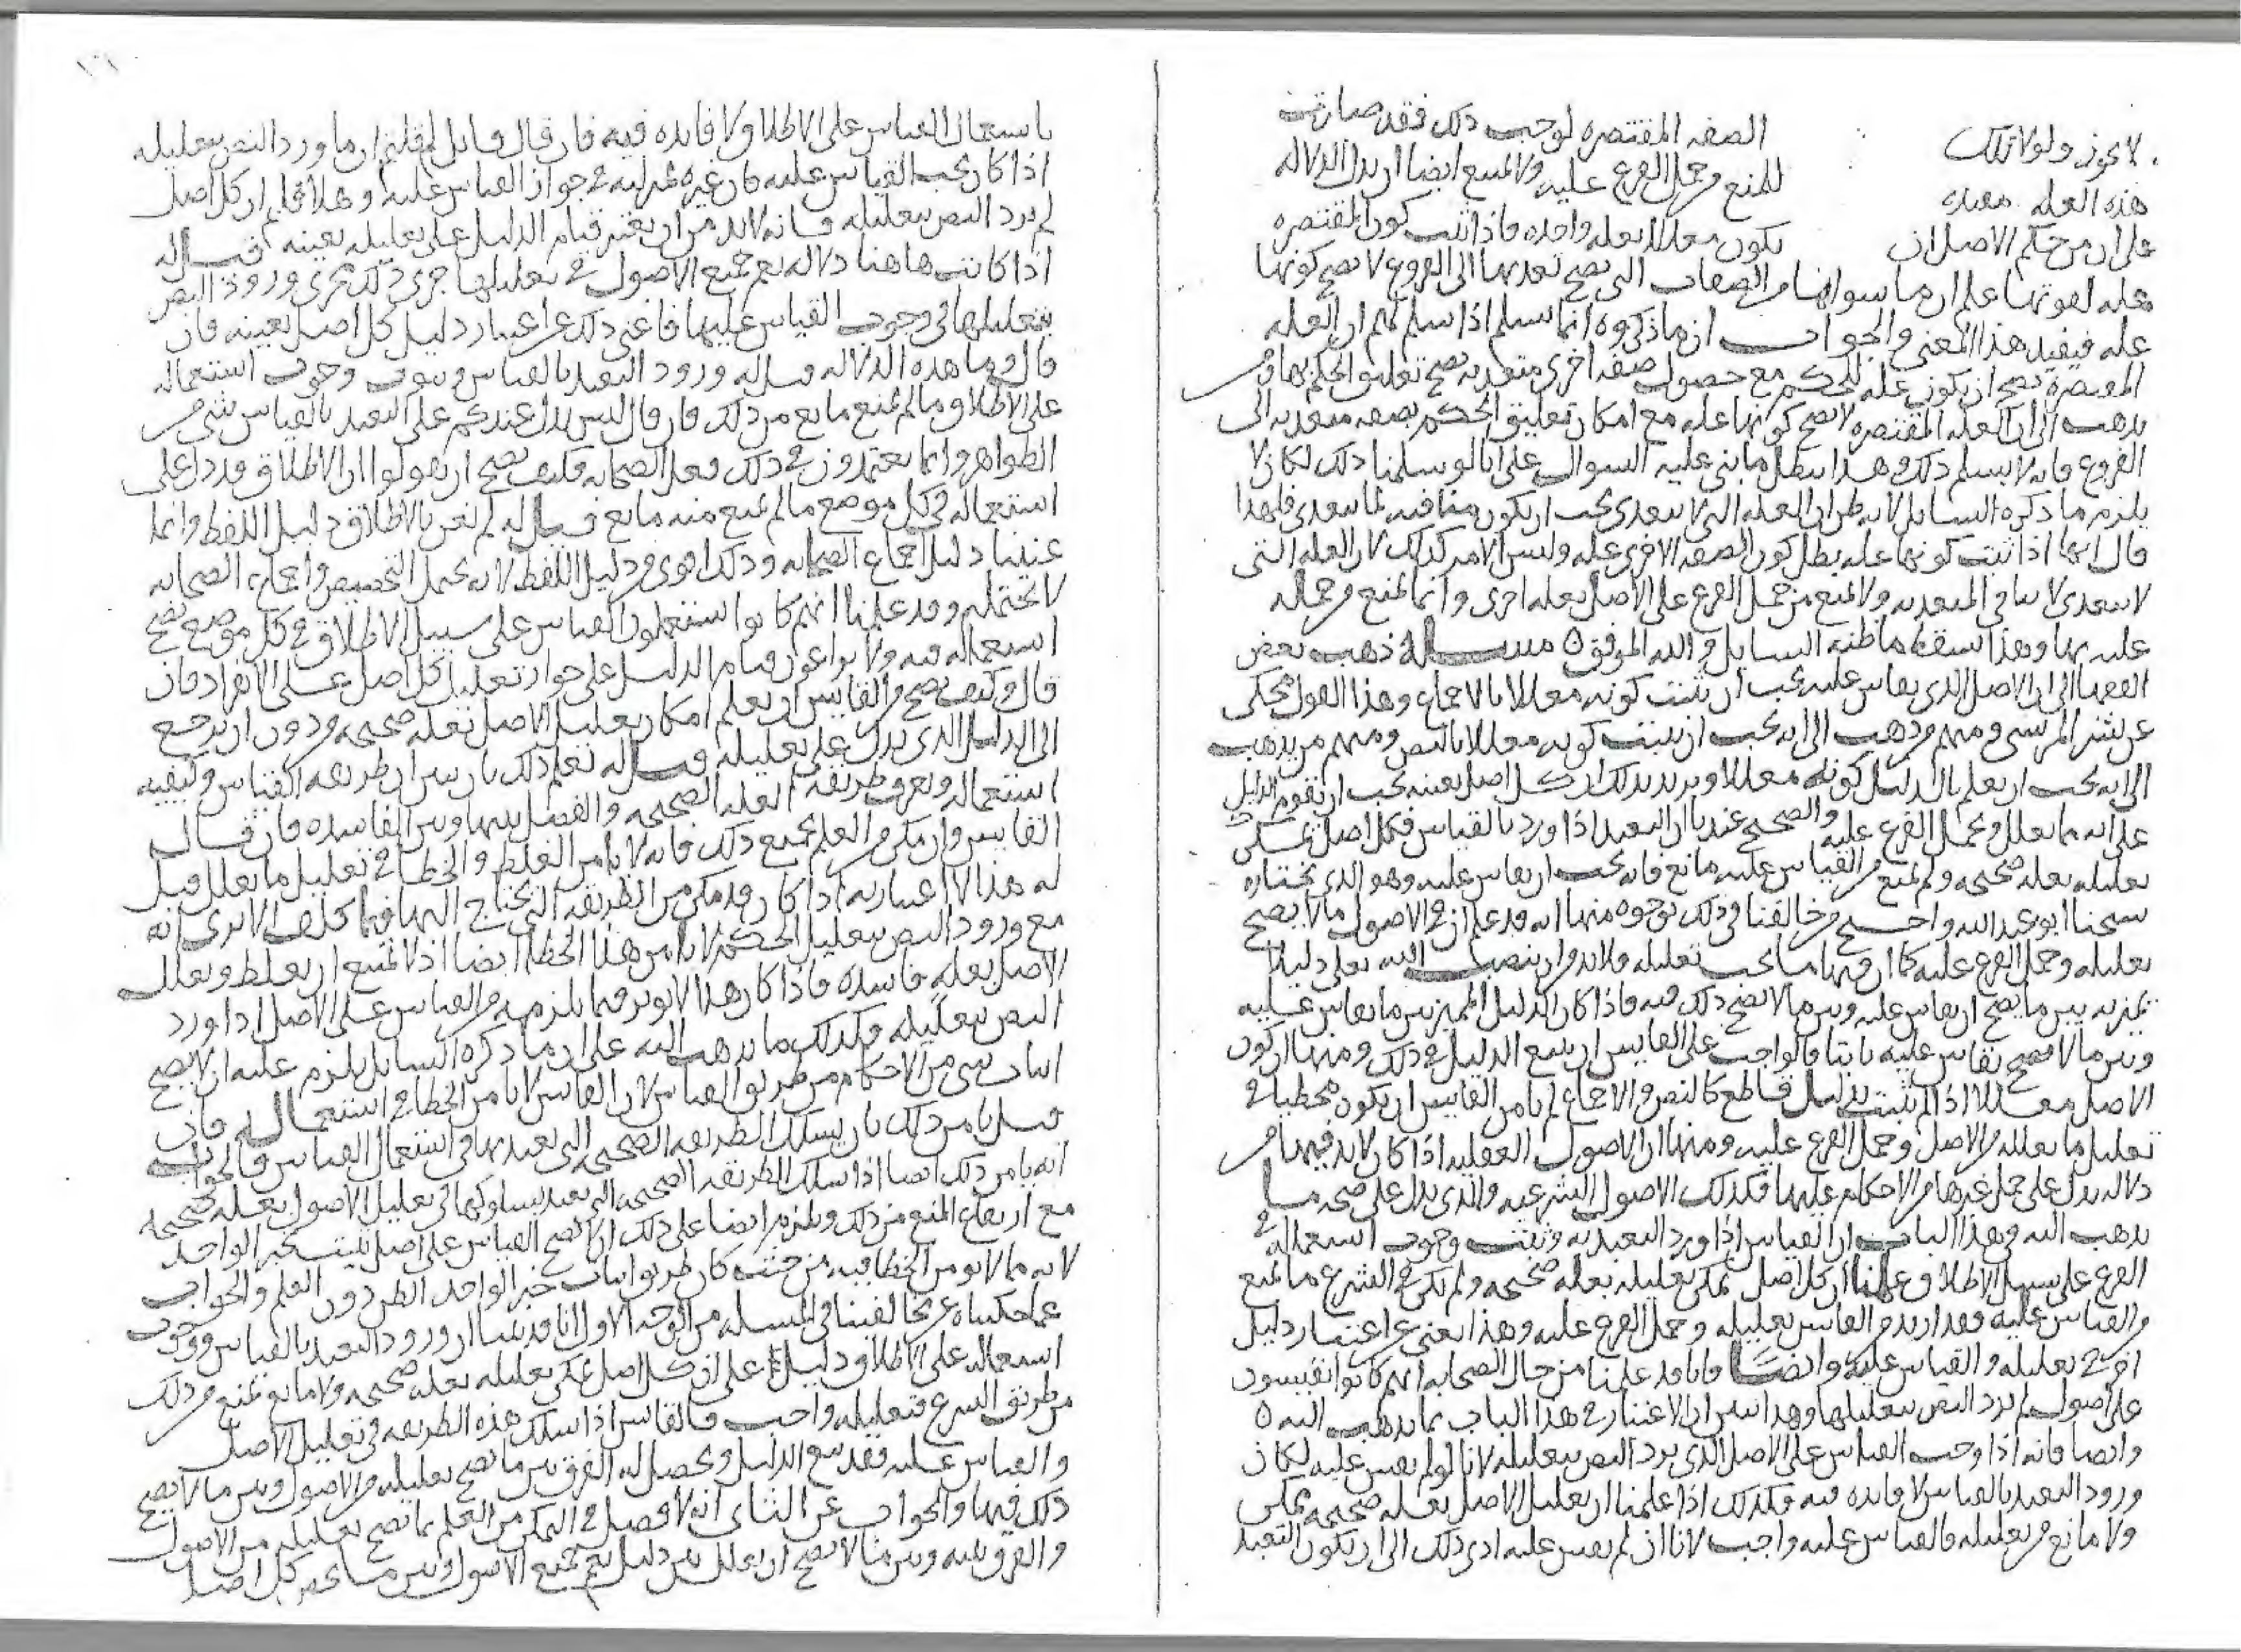 لا يجوز ولولا تلك الصفه المقتصره لوجب ذلك فقد صارت
هذه العله مفيده للمنع من حمل الفرع عليه ولا يمتنع ايضا ان يدل الدلاله
على ان من حكم الاصل ان يكون معللا بعله واحده فاذا ثبت كون المقتصره
عله لقوتها علم ان ما سواها من الصفات التي يصح تعديها الى الفروع لا يصح كونها
عله فيفيد هذا المعنى والجواب ان ما ذكروه انما يسلم اذا سلم لهم ان العله
المقتصره يصح ان يكون عله للحكم مع حصول صفه اخرى متعديه يصح تعليق الحكم بها ومن
يذهب الى ان العله المقتصره لا يصح كونها عله مع امكان تعليق الحكم بصفه متعديه الى
الفروع فانه لا يسلم ذلك وهذا يبطل ما بنى عليه السوال على انا لو سلمنا ذلك لكان لا
يلزم ما ذكره السايل لانه ظن ان العله التي لا تتعدى يجب ان يكون منافيه لما يتعدى فلهذا
قال انها اذا ثبت كونها عله بطل كون الصفه الاخرى عله وليس الامر كذلك لان العله التي
لا تتعدى لا تنافي المتعديه ولا تمنع من حمل الفرع على الاصل بعله اخرى وانما تمنع من حمله
عليه بها وهذا يسقط ما ظنه السايل والله الموفق ه مسـله ذهب بعض
الفقها الى ان الاصل الذي يقاس عليه يجب ان يثبت كونه معللا بالاجماع وهذا القول يحكى
عن بشر المريسي ومنهم من ذهب الى انه يجب ان يثبت كونه معللا بالنص ومنهم من يذهب
الى انه يجب ان يعلم بالدليل كونه معللا ويريد بذلك ان كل اصل بعينه يجب ان يقوم الدليل
على انه مما يعلل ويحمل الفرع عليه والصحيح عندنا ان التعبد اذا ورد بالقياس فكل اصل يمكن
تعليله بعله صحيحه ولم يمنع من القياس عليه مانع فانه يجب ان يقاس عليه وهو الذي يختاره
شيخنا ابو عبد الله واحتج من خالفنا في ذلك بوجوه منها انه قد علم ان في الاصول ما لا يصح
تعليله وحمل الفرع عليه كما ان فيها ما يجب تعليله ولا بد من ان ينصب الله تعلى دليلا
يميز به بين ما يصح ان يقاس عليه وبين ما لا يصح ذلك فيه فاذا كان الدليل المميز بين ما يقاس عليه
وبين ما لا يصح يقاس عليه ثابتا فالواجب على القايس ان يتبع الدليل في ذلك ومنها ان كون
الاصل معللا اذا لم يثبت بدليل قاطع كالنص والاجماع لم يامن القايس ان يكون مخطيا في
تعليل ما يعلله من الاصل وحمل الفرع عليه ومنها ان الاصول العقليه اذا كان لا بد فيها من
دلاله تدل على حمل غيرها من الاحكام عليها فكذلك الاصول الشرعيه والذي يدل على صحه ما
يذهب اليه في هذا الباب ان القياس اذا ورد التعبد به وثبت وجوب استعماله في
الفرع على سبيل الاطلاق وعلمنا ان كل اصل يمكن تعليله بعله صحيحه ولم يكن في الشرع ما يمنع
من القياس عليه فقد اريد من القايس تعليله وحمل الفرع عليه وهذا يغني عن اعتبار دليل
اخر في تعليله والقياس عليه وايضا فانا قد علمنا من حال الصحابه انهم كانوا يقيسون
على اصول لم يرد النص بتعليلها وهذا يبين ان الاعتبار في هذا الباب بما يذهب اليه ه
وايضا فانه اذا وجب القياس على الاصل الذي يرد النص بتعليله لانا لو لم نقس عليه لكان
ورود التعبد بالقياس لا فايده فيه فكذلك اذا علمنا ان تعليل الاصل بعله صحيحه ممكن
ولا مانع من تعليله فالقياس عليه واجب لانا ان لم نقس عليه ادى ذلك الى ان يكون التعبد
١٦١
باستعمال القياس على الاطلاق لا فايده فيه فان قال قايل لم قلتم ان ما ورد النص بتعليله
اذا كان يجب القياس عليه كان غيره بمنزلته في جواز القياس عليه وهلا قلتم ان كل اصل
لم يرد النص بتعليله فانه لا بد من ان يعتبر قيام الدليل على تعليله بعينه قيل له
اذا كانت هاهنا دلاله تعم جميع الاصول في تعليلها جرى ذلك مجرى ورود النص
بتعليلها في وجوب القياس عليها فاغنى ذلك عن اعتبار دليل كل اصل بعينه فان
قال وما هذه الدلاله قيل له ورود التعبد بالقياس وثبوت وجوب استعماله
على الاطلاق ما لم يمنع مانع من ذلك فان قال ليس يدل عندكم على التعبد بالقياس شي من
الظواهر وانما تعتمدون في ذلك فعل الصحابه فكيف يصح ان تقولوا ان الاطلاق قد دل على
استعماله في كل موضع ما لم يمنع منه مانع قيل له لم نعن بالاطلاق دليل اللفظ وانما
عنينا دليل اجماع الصحابه وذلك اقوى من دليل اللفظ لانه يحتمل التخصيص واجماع الصحابه
لا يحتمله وقد علمنا انهم كانوا يستعملون القياس على سبيل الاطلاق في كل موضع يصح
استعماله فيه ولا يراعون قيام الدليل على جواز تعليل كل اصل على الانفراد فان
قال وكيف يصح من القايس ان يعلم امكان تعليل الاصل بعله صحيحه من دون ان يرجع
الى الدليل الذي يدل على تعليله قيل له نعلم ذلك بان يبين ان طريقه القياس وكيفيه
استعماله ونعرف طريقه العله الصحيحه والفصل بينها وبين الفاسده فان قال
القايس وان مكن من العلم بجميع ذلك فانه لا يامن الغلط والخطا في تعليل ما يعلل قيل
له هذا لا اعتبار به اذا كان قد مكن من الطريقه التي يحتاج اليها فيما كلف الا ترى انه
مع ورود النص بتعليل الحكم لا يامن هذا الخطا ايضا اذ لا يمتنع ان يغلط ويعلل
الاصل بعله فاسده فاذا كان هذا لا يوثر فيما يلزمه من القياس على الاصل اذا ورد
النص بتعليله فكذلك ما يذهب اليه على ان ما ذكره السايل يلزم عليه ان لا يصح
اثبات شي من الاحكام من طريق القياس لان القايس لا يامن الخطا في استعماله فان
قيل يامن ذلك بان يسلك الطريقه الصحيحه التي تعبد بها في استعمال القياس فالجواب
انه يامن ذلك ايضا اذا سلك الطريقه الصحيحه التي تعبد بسلوكها في تعليل الاصول بعله صحيحه
مع ارتفاع المنع من ذلك ويلزم ايضا على ذلك ان لا يصح القياس على اصل يثبت بخبر الواحد
لانه مما لا يومن الخطا فيه من حيث كان طريق اثبات خبر الواحد الظن دون العلم والجواب
عما حكيناه عن مخالفينا في المسله من الوجه الاول انا قد بينا ان ورود التعبد بالقياس ووجوب
استعماله على الاطلاق دليل على ان كل اصل يمكن تعليله بعله صحيحه ولا مانع يمنع من ذلك
من طريق الشرع فتعليله واجب فالقايس اذا سلك هذه الطريقه في تعليل الاصل
والقياس عليه فقد تبع الدليل ويحصل له الفرق بين ما يصح تعليله من الاصول وبين ما لا يصح
ذلك فيها والجواب عن الثاني انه لا فصل في التمكن من العلم بما يصح تعليله من الاصول
والفرق بينه وبين ما لا يصح ان يعلل بين دليل يعم جميع الاصول وبين ما يخص كل اصل